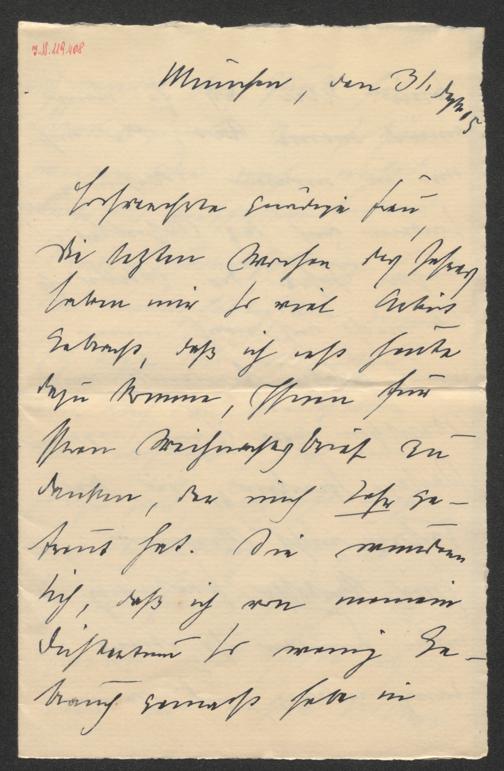 I.N. 119.408
München, den 31. Dez. 05
Hochverehrte gnädige Frau,
die letzten Wochen des Jahres
haben mir so viel Arbeit
gebracht, daß ich erst heute
dazu komme, Ihnen für
Ihren Weihnachtsbrief zu
danken, der mich sehr ge-
freut hat. Sie wundern
sich, daß ich von meinem
Dichtertum so wenig Ge-
brauch gemacht habe in